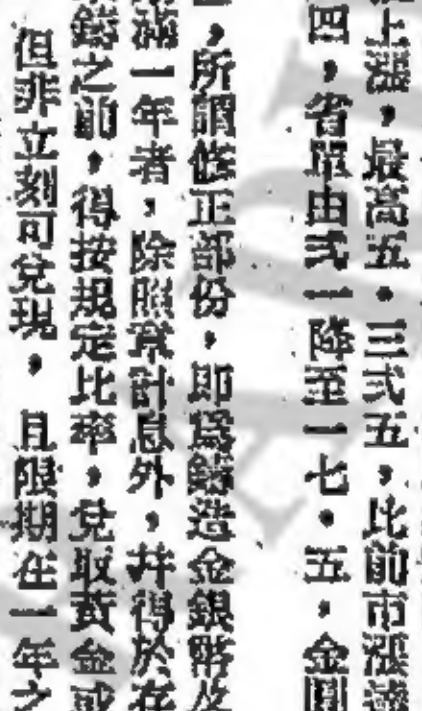 上漲，最高五．三弍五，比前市漲
四，省單由弍一降至一七．五，金圓
，所謂修正部份，即為鑄造金銀幣及
滿一年者，除照常計息外，幷得於存
錢之前，得按規定比率，兌取黃金或
但非立刻可兌現，且限期在一年之